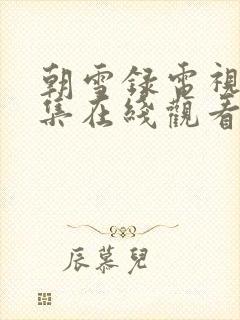 朝雪録電視
集在綫觀看
辰慕兒